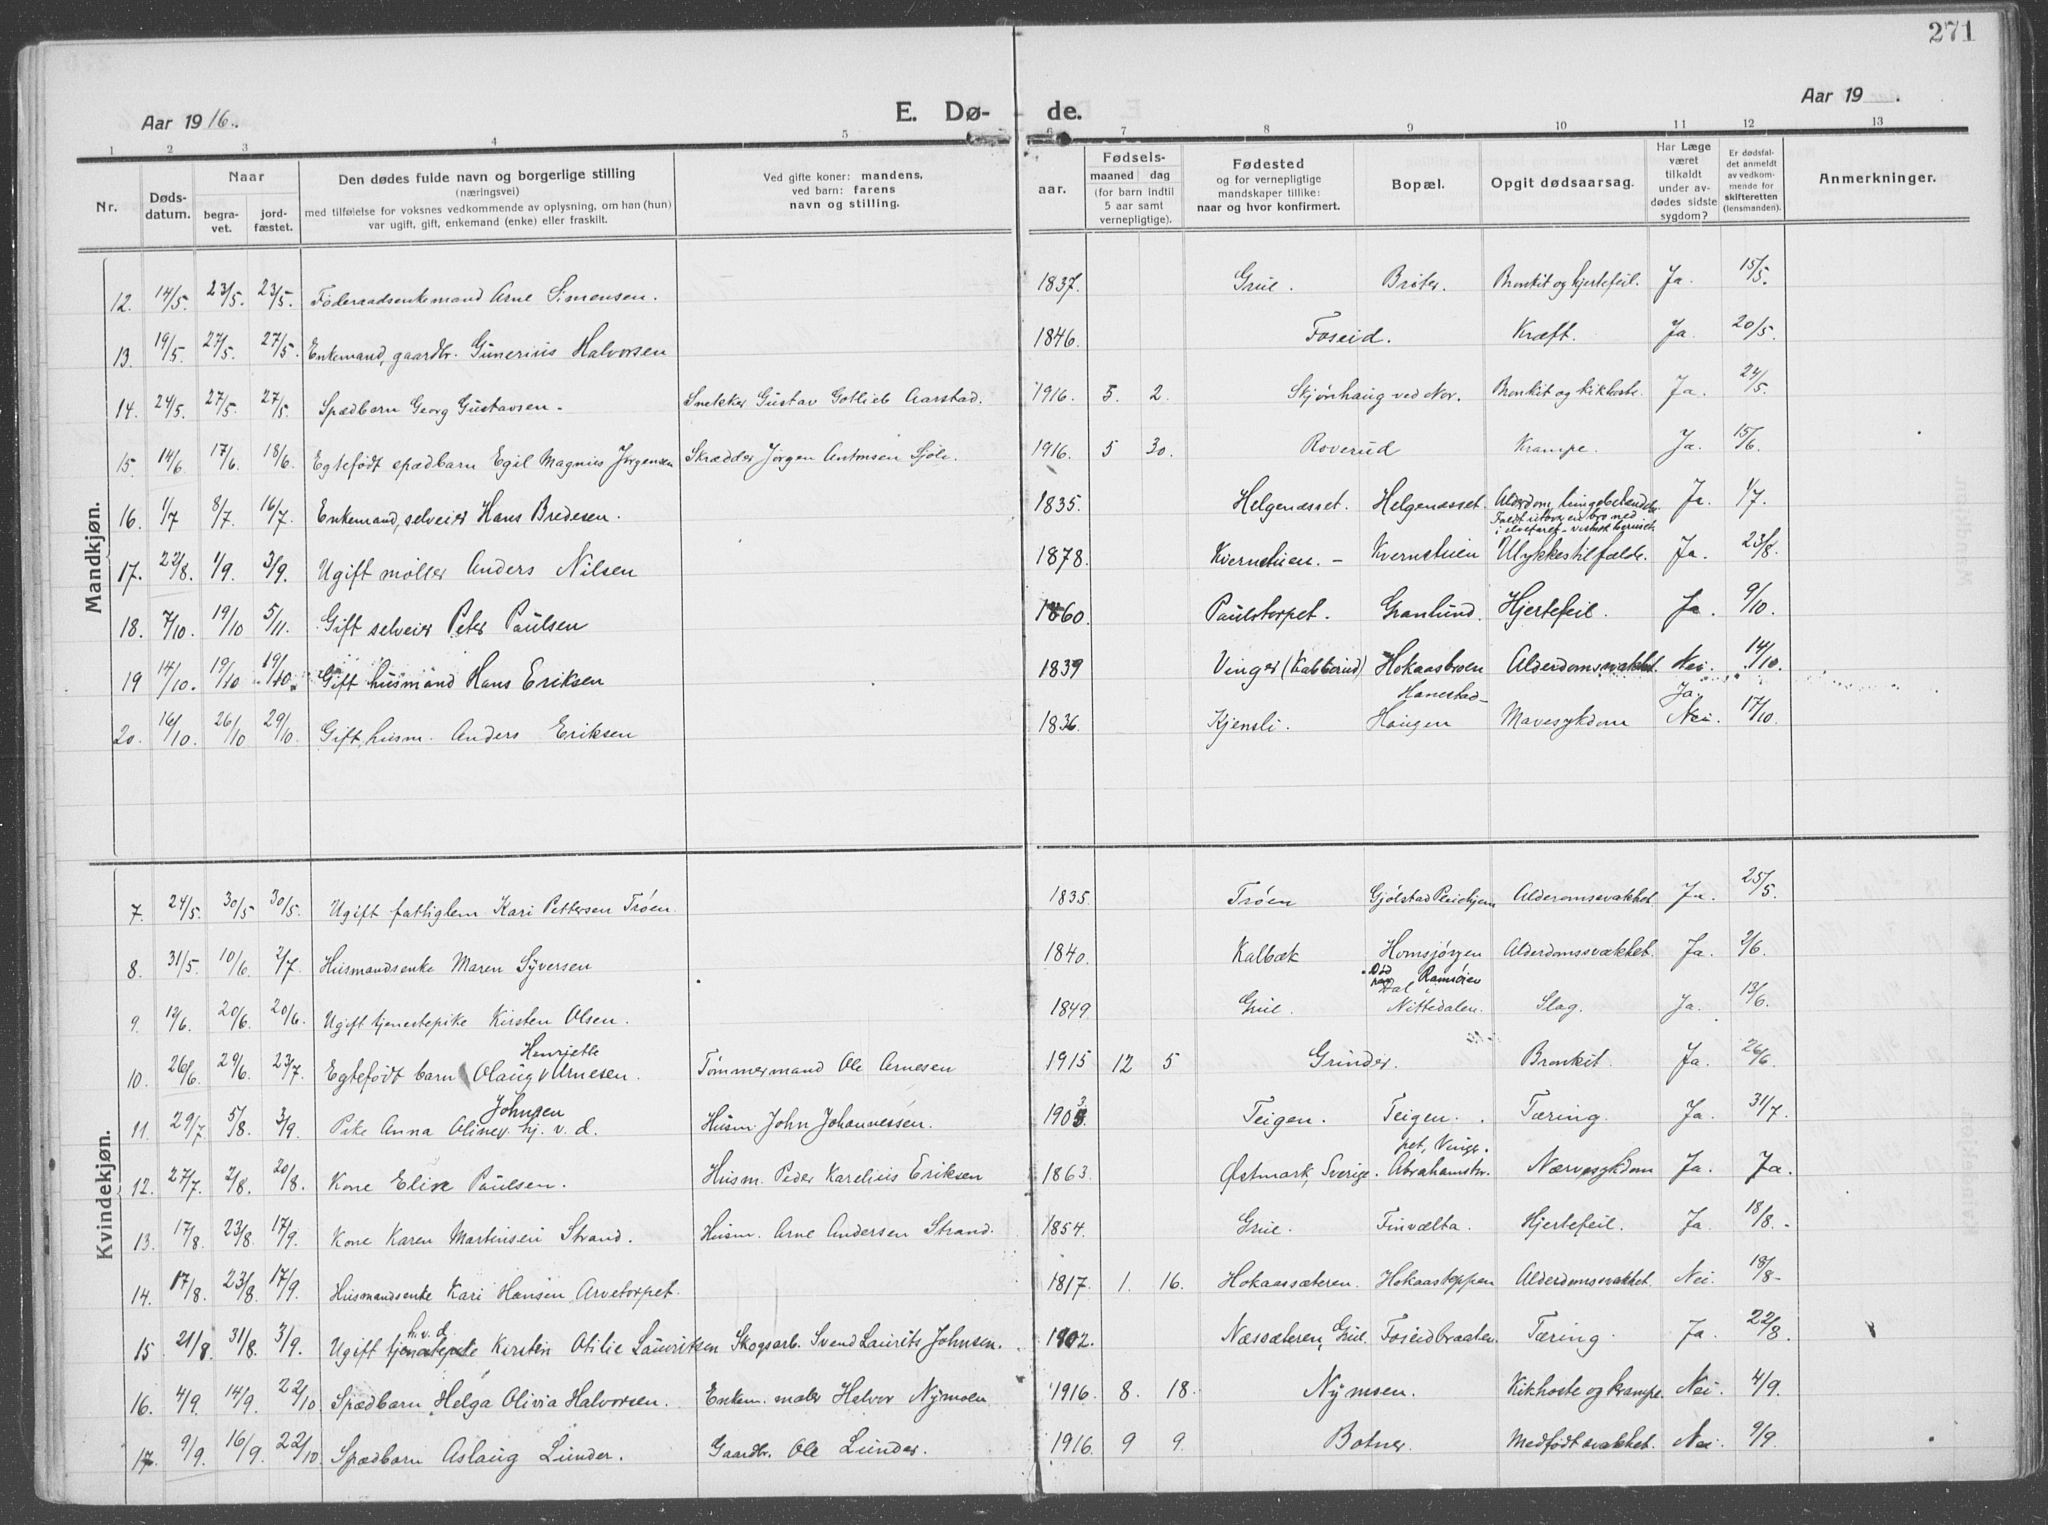 271
Aar 1916.
E. Dø-
de.
Aar 19 .
1 2 3 4 5 6 7 8 9 10 11 12 13
Nr.
Døds-datum.
Naar
begra-vet.
jord-fæstet.
Den dødes fulde navn og borgerlige stilling
(næringsvei)
med tilføielse for voksnes vedkommende av oplysning, om han (hun)
var ugift, gift, enkemand (enke) eller fraskilt.
Ved gifte koner: mandens,
ved barn: farens
navn og stilling.
aar.
Fødsels-
maaned dag
(for barn indtil
5 aar samt
vernepligtige).
Fødested
og for vernepligtige
mandskaper tillike:
naar og hvor konfirmert.
Bopæl.
Opgit dødsaarsag.
Har Læge
været
tilkaldt
under av-
dødes sidste
sygdom?
Er dødsfal-
det anmeldt
av vedkom-
mende for
skifteretten
(lensmanden).
Anmerkninger.
Mandkjøn.
12. 14/5. 23/5. 23/5. Føderaadsenkemand Arne Simensen. 1837. Grue. Brøter. Bronkit og hjertefeil. Ja. 15/5.
13 19/5. 27/5. 27/5. Enkemand, gaardbr. Gunerius Halvorsen 1846. Foseid. Kræft. Ja. 20/5.
14. 24/5. 27/5. 27/5. Spædbarn Georg Gustavsen. Snekker Gustav Gotlieb Aarstad. 1916. 5. 2. Skjønhaug ved Nor. Bronkit og kikhoste. Ja. 24/5.
15. 14/6. 17/6. 18/6. Egtefødt spædbarn Egil Magnus Jørgensen Skrædder Jørgen Antonsen Sjøli. 1916. 5 30. Roverud Krampe. Ja. 15/6.
16. 1/7 8/7. 16/7. Enkemand, selveier Hans Bredesen. 1835. Helgenæsset. Helgenæsset. Alderdom, lungebetændelse. Ja. 1/7.
Faldt utover en bro ned
i elvefaret
17. 22/8. 1/9. 3/9. Ugift møller Anders Nilsen 1878. Kvernstuen. - Kvernstuen Ulykkestilfælde. Ja. 23/8.
18. 7/10. 19/10 5/11. Gift selveier Peter Paulsen 1860. Paulstorpet. Granlund. Hjertefeil. Ja. 9/10.
19 14/10. 19/10 19/10. Gift husmand Hans Eriksen 1839 Vinger (Kabberud) Hokaasbroen Alderdomssvakhet. Nei. 14/10.
Hanestad- Ja.
20. 16/10. 26/10 29/10. Gift, husm. Anders Eriksen 1836. Kjensli. Haugen Mavesykdom Nei. 17/10.
Kvindekjøn.
7. 24/5. 30/5 30/5. Ugift fattiglem Kari Pettersen Trøen. 1835. Trøen Gjølstad Pleiehjem Alderomssvakhet. Ja. 25/5.
8. 31/5. 10/6. 2/7. Husmandsenke Maren Syversen 1840. Kalbæk Homsjørgen Alderdomssvækhet. Ja. 2/6.
Død
Ramsøien
9. 12/6. 20/6. 20/6. Ugift tjenestepike Kirsten Olsen. 1849 Grue. Nittedalen. Slag. Ja. 13/6.
Henriette
10. 26/6. 29/6. 23/7. Egtefødt barn Olaug v Arnesen. Tømmermand Ole Arnesen 1915 12 5 Grinder. Bronkit. Ja. 26/6.
Johnsen
11. 29/7 5/8. 3/9. Pike Anna Oline v. hj. v. d. Husm. John Johannessen. 1903. Teigen. Teigen. Tæring. Ja. 31/7.
pet, Vinger.
12. 27/7. 2/8. 20/8. Kone Eline Paulsen. Husm. Peder Karelius Eriksen 1863. Østmark, Sverige. Abrahamstor. Nærvesykdom Ja. Ja.
13. 17/8. 23/8. 17/9. Kone Karen Martinsen Strand. Husm. Arne Andersen Strand. 1854. Grue. Finvælta. Hjertefeil. Ja. 18/8. -
14. 17/8. 23/8. 17/9. Husmandsenke Kari Hansen Arvetorpet. 1817. 1. 16. Hokaassæteren. Hokaasteppen Alderdomssvakhet. Nei. 18/8-
h. v. d.
15 21/8. 31/8. 3/9. Ugift tjenestepike Kirsten Otilie Lauritsen Skogsarb. Svend Laurits Johnsen. 1902. Næssæteren, Grue. Foseidbraaten. Tæring. Ja. 22/8.
16. 4/9. 14/9. 22/10 Spædbarn Helga Olivia Halvorsen. Enkem. maler Halvor Nymoen 1916. 8. 18. Nymoen. Kikhoste og krampe. Nei. 4/9.
17. 9/9. 16/9. 22/10 Spædbarn Aslaug Lunder. Gaardbr. Ole Lunder. 1916. 9 9. Botner. Medfødt svakhet. Nei. 9/9.